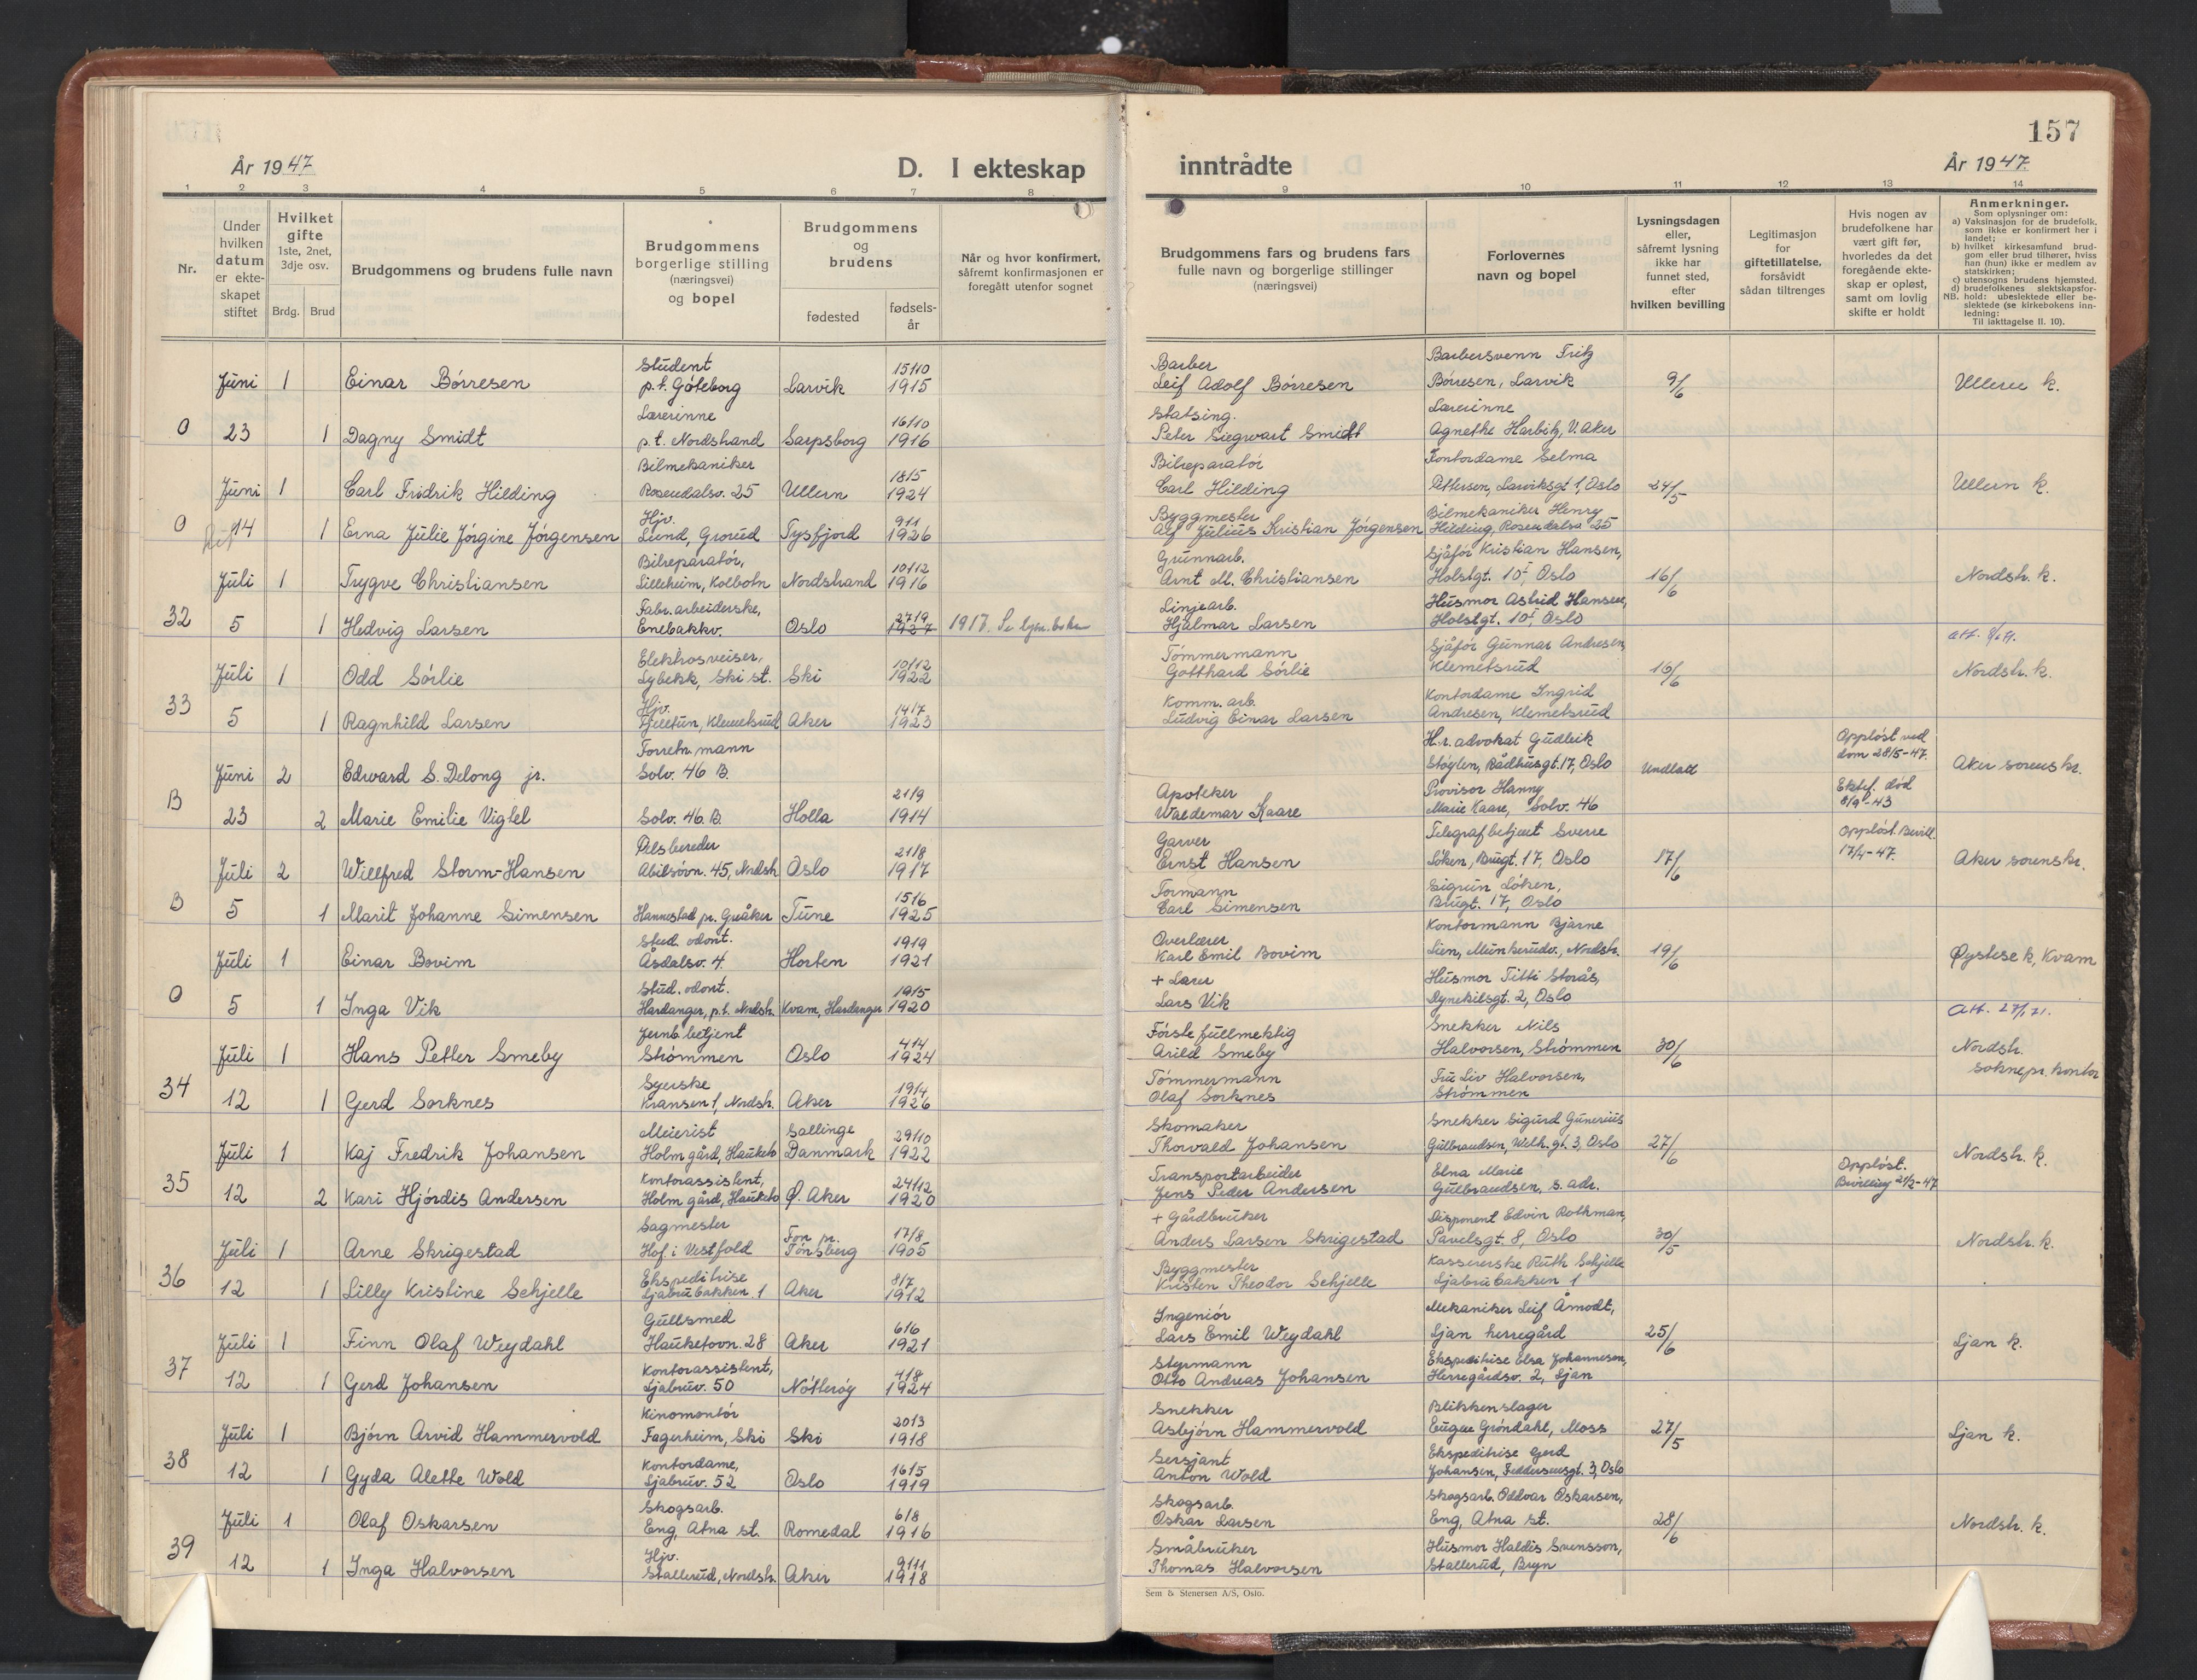 157
År 1947
D. I ekteskap
inntrådte
År 1947
1 2 3 4 5 6 7 8 9 10 11 12 13 14
Nr.
Under hvilken datum er ekteskapet stiftet
Hvilket gifte 1ste, 2net, 3dje osv.
Brdg. Brud
Brudgommens og brudens fulle navn
Brudgommens borgerlige stilling (næringsvei) og bopel
Brudgommens og brudens
fødested
fødselsår
Når og hvor konfirmert, såfremt konfirmasjonen er foregått utenfor sognet
Brudgommens fars og brudens fars fulle navn og borgerlige stillinger (næringsvei)
Forlovernes navn og bopel
Lysningsdagen eller, såfremt lysning ikke har funnet sted, efter hvilken bevilling
Legitimasjon for giftetillatelse, forsåvidt sådan tiltrenges
Hvis nogen av brudefolkene har vært gift før, hvorledes da det foregående ekteskap er opløst, samt om lovlig skifte er holdt
Anmerkninger.
Som oplysninger om:
a) Vaksinasjon for de brudefolk, som ikke er konfirmert her i landet;
b) hvilket kirkesamfund brudgom eller brud tilhører, hviss han (hun) ikke er medlem av statskirken;
c) utensogns brudens hjemsted.
d) brudefolkenes slektskapsforhold: ubeslektede eller beslektede (se kirkebokens innledning:
NB.
Til iakttagelse II. 10).
Juni 1 Einar Börresen Student p.t. Göteborg Larvik 15/10 1915 Barber Leif Adolf Börresen Barbersvenn Fritz Börresen, Larvik 9/6 Ullern k.
O 23 1 Dagny Smidt Lærerinne p.t. Nordstrand Sarpsborg 16/10 1916 Statsing. Peter Siegwart Smidt Lærerinne Agnethe Harbitz, V. Aker
Juni 1 Carl Fridrik Hilding Bilmekaniker Rosendalsv. 25 Ullern 18/5 1924 Bilreparatör Carl Hilding Kontordame Selma Pettersen, Larviksgt 1, Oslo 24/5 Ullern k.
O 14 1 Erna Julie Jörgine Jörgensen Hjv. Lund, Grorud Tysfjord 9/1 1926 Byggmester Alf Julius Kristian Jörgensen Bilmekaniker Henry Hilding, Rosendalsv 25
Juli 1 Trygve Christiansen Bilreparatör, Lilleheim, Kolbotn Nordstrand 10/12 1916 Grunnarb. Arnt M. Christiansen Sjåför Kristian Hansen, Holstgt. 10 I, Oslo 16/6 Nordstr. k.
32 5 1 Hedvig Larsen Fabr. arbeiderske, Enebakkv. Oslo 27/9 1927 1917. Se lysn. boka Linjearb. Hjalmar Larsen Husmor Astrid Hansen, Holstgt. 10 I, Oslo
Juli 1 Odd Sörlie Elektrosveiser, Lybekk, Ski st. Ski 10/12 1922 Tömmermann Gotthard Sörlie Sjåför Gunnar Andresen, Klemetsrud 16/6 Nordstr. k.
33 5 1 Ragnhild Larsen Hjv. Fjelltun, Klemetsrud Aker 14/7 1923 Komm. arb. Ludvig Einar Larsen Kontordame Ingrid Andresen, Klemetsrud
Juni 2 Edward S. Delong jr. Forretn. mann Solv. 46 B. H.r. advokat Gudleik Stöylen, Rådhusgt. 17, Oslo Undlatt Opplöst ved dom 28/5-47. Aker sorenskr.
B 23 2 Marie Emilie Vigtel Solv. 46. B. Holla 21/9 1914 Apoteker Waldemar Kaare Provisor Hanny Marie Kaare, Solv. 46 Ektef. död 8/9-43
Juli 2 Willfred Storm-Hansen Pelsbereder Abilsövn. 45, Nordstr. Oslo 21/8 1917 Garver Ernst Hansen Telegrafbetjent Sverre Löken, Brugt. 17, Oslo 17/6 Opplöst. Bevill. 17/4-47. Aker sorenskr.
B 5 1 Marit Johanne Simensen Hannestad pr. Greåker Tune 15/6 1925 Formann Carl Simensen Sigrun Löken, Brugt. 17, Oslo
Juli 1 Einar Bovim Stud. odont. Åsdalsv. 4. Horten 19/9 1921 Overlærer Karl Emil Bovim Kontormann Bjarne Lien, Munkerudv., Nordstr. 19/6 Øystese k, Kvam
O 5 1 Inga Vik Stud. odont. Hardanger, p.t. Nordstr. Kvam, Hardanger 19/5 1920 + Lærer Lars Vik Husmor Titti Storås, Dynekilsgt. 2, Oslo
Att. 27/1 71.
Juli 1 Hans Petter Smeby Jernb. betjent Strömmen Oslo 4/4 1924 Förstefullmektig Arild Smeby Snekker Nils Halvorsen, Strömmen 30/6 Nordstr. soknepr. kontor
34 12 1 Gerd Sorknes Syerske Kransen 1, Nordstr. Aker 19/4 1926 Tömmermann Olaf Sorknes Fru Liv Halvorsen, Strömmen
Juli 1 Kaj Fredrik Johansen Meierist Holm gård, Hauketo Sallinge Danmark 29/10 1922 Skomaker Thorvald Johansen Snekker Sigurd Gunerius Gulbrandsen, Wilh. gt. 3, Oslo 27/6 Nordstr. k.
35 12 2 Kari Hjördis Andersen Kontorassistent, Holm gård, Hauketo Ø. Aker 24/12 1920 Transportarbeider Jens Peder Andersen Elna Marie Gulbrandsen, s. adr. Opplöst. Bevilling 21/2-47
Juli 1 Arne Skrigestad Sagmester Hof i Vestfold Fon pr. Tönsberg 17/8 1905 + Gårdbruker Anders Larsen Skrigestad Disponent Edvin Rothman, Pavelsgt. 8, Oslo 30/5 Nordstr. k.
36 12 1 Lilly Kristine Schjelle Ekspeditrise Ljabrubakken 1 Aker 8/7 1912 Byggmester Kristen Theodor Schjelle Kassererske Ruth Schjelle Ljabrubakken 1
Juli 1 Finn Olaf Weydahl Gullsmed Hauketovn. 28 Aker 6/6 1921 Ingeniör Lars Emil Weydahl Mekaniker Leif Åmodt, Ljan herregård 25/6 Ljan k.
37 12 1 Gerd Johansen Kontorassistent, Ljabruv. 50 Nötteröy 4/8 1924 Styrmann Otto Andreas Johansen Ekspeditrise Elsa Johannesen, Herregårdsv. 2, Ljan
Juli 1 Björn Arvid Hammervold Kinomontör Fagerheim, Ski Ski 20/3 1918 Snekker Asbjörn Hammervold Blikkenslager Eugen Gröndahl, Moss 27/5 Ljan k.
38 12 1 Gyda Alette Wold Kontordame, Ljabruv. 52 Oslo 16/5 1919 Sersjant Anton Wold Ekspeditrise Gerd Johansen, Feddersensgt. 3, Oslo
Juli 1 Olaf Oskarsen Skogsarb. Eng, Atna st. Romedal 6/8 1916 Skogsarb. Oskar Larsen Skogsarb. Oddvar Oskarsen, Eng, Atna st. 28/6 Nordstr. k.
39 12 1 Inga Halvorsen Hjv. Stallerud, Nordstr. Aker 9/11 1918 Småbruker Thomas Halvorsen Husmor Haldis Svensson, Stallerud, Bryn
Sem & Stenersen A/S, Oslo.